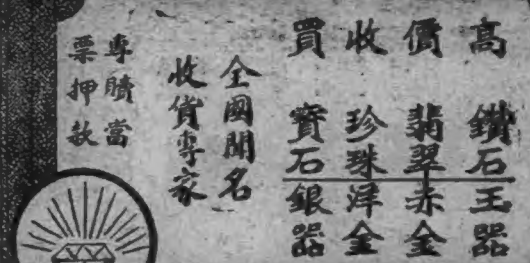 高價收買
鑽石玉器
翡翠赤金
珍珠洋金
寶石銀器
全國聞名
收貨專家
專贖當
票押款